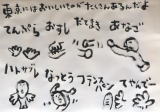 東京にはおいしいものがたくさんあるんだよ
てんぷら おすし だてまき あなご
ハトサブレ なっとう フランスパン てやんで